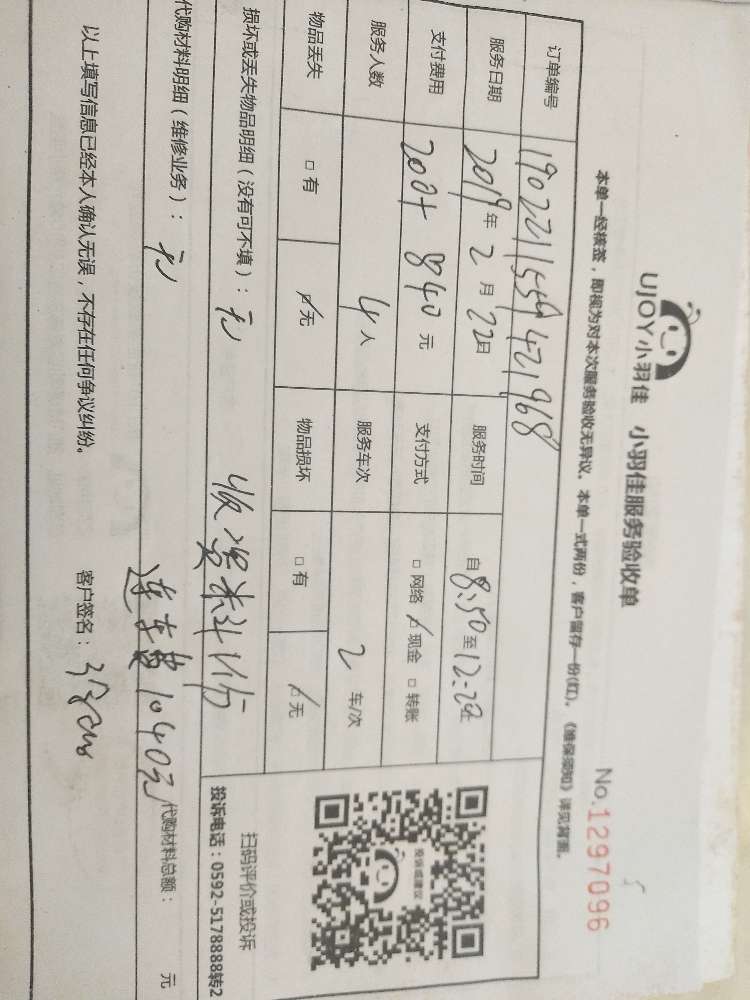 UJOY小羽佳 小羽佳服务验收单
No.1297096
本单一经核签，即视为对本次服务验收无异议。本单一式两份，客户留存一份(红)。《维保须知》详见背面。
订单编号 190221155421968
服务日期 2019年2月22日 服务时间 自8:50至12:20止
支付费用 200+840元 支付方式 □网络 ☑现金 □转账
服务人数 4人 服务车次 2车/次
物品丢失 □有 ☑无 物品损坏 □有 ☑无
损坏或丢失物品明细（没有可不填）：无
收资料1份
代购材料明细（维修业务）：无
连车费1040元
代购材料总额： 元
扫码评价或投诉
投诉电话：0592-5178888转2
投诉或建议
以上填写信息已经本人确认无误，不存在任何争议纠纷。 客户签名：